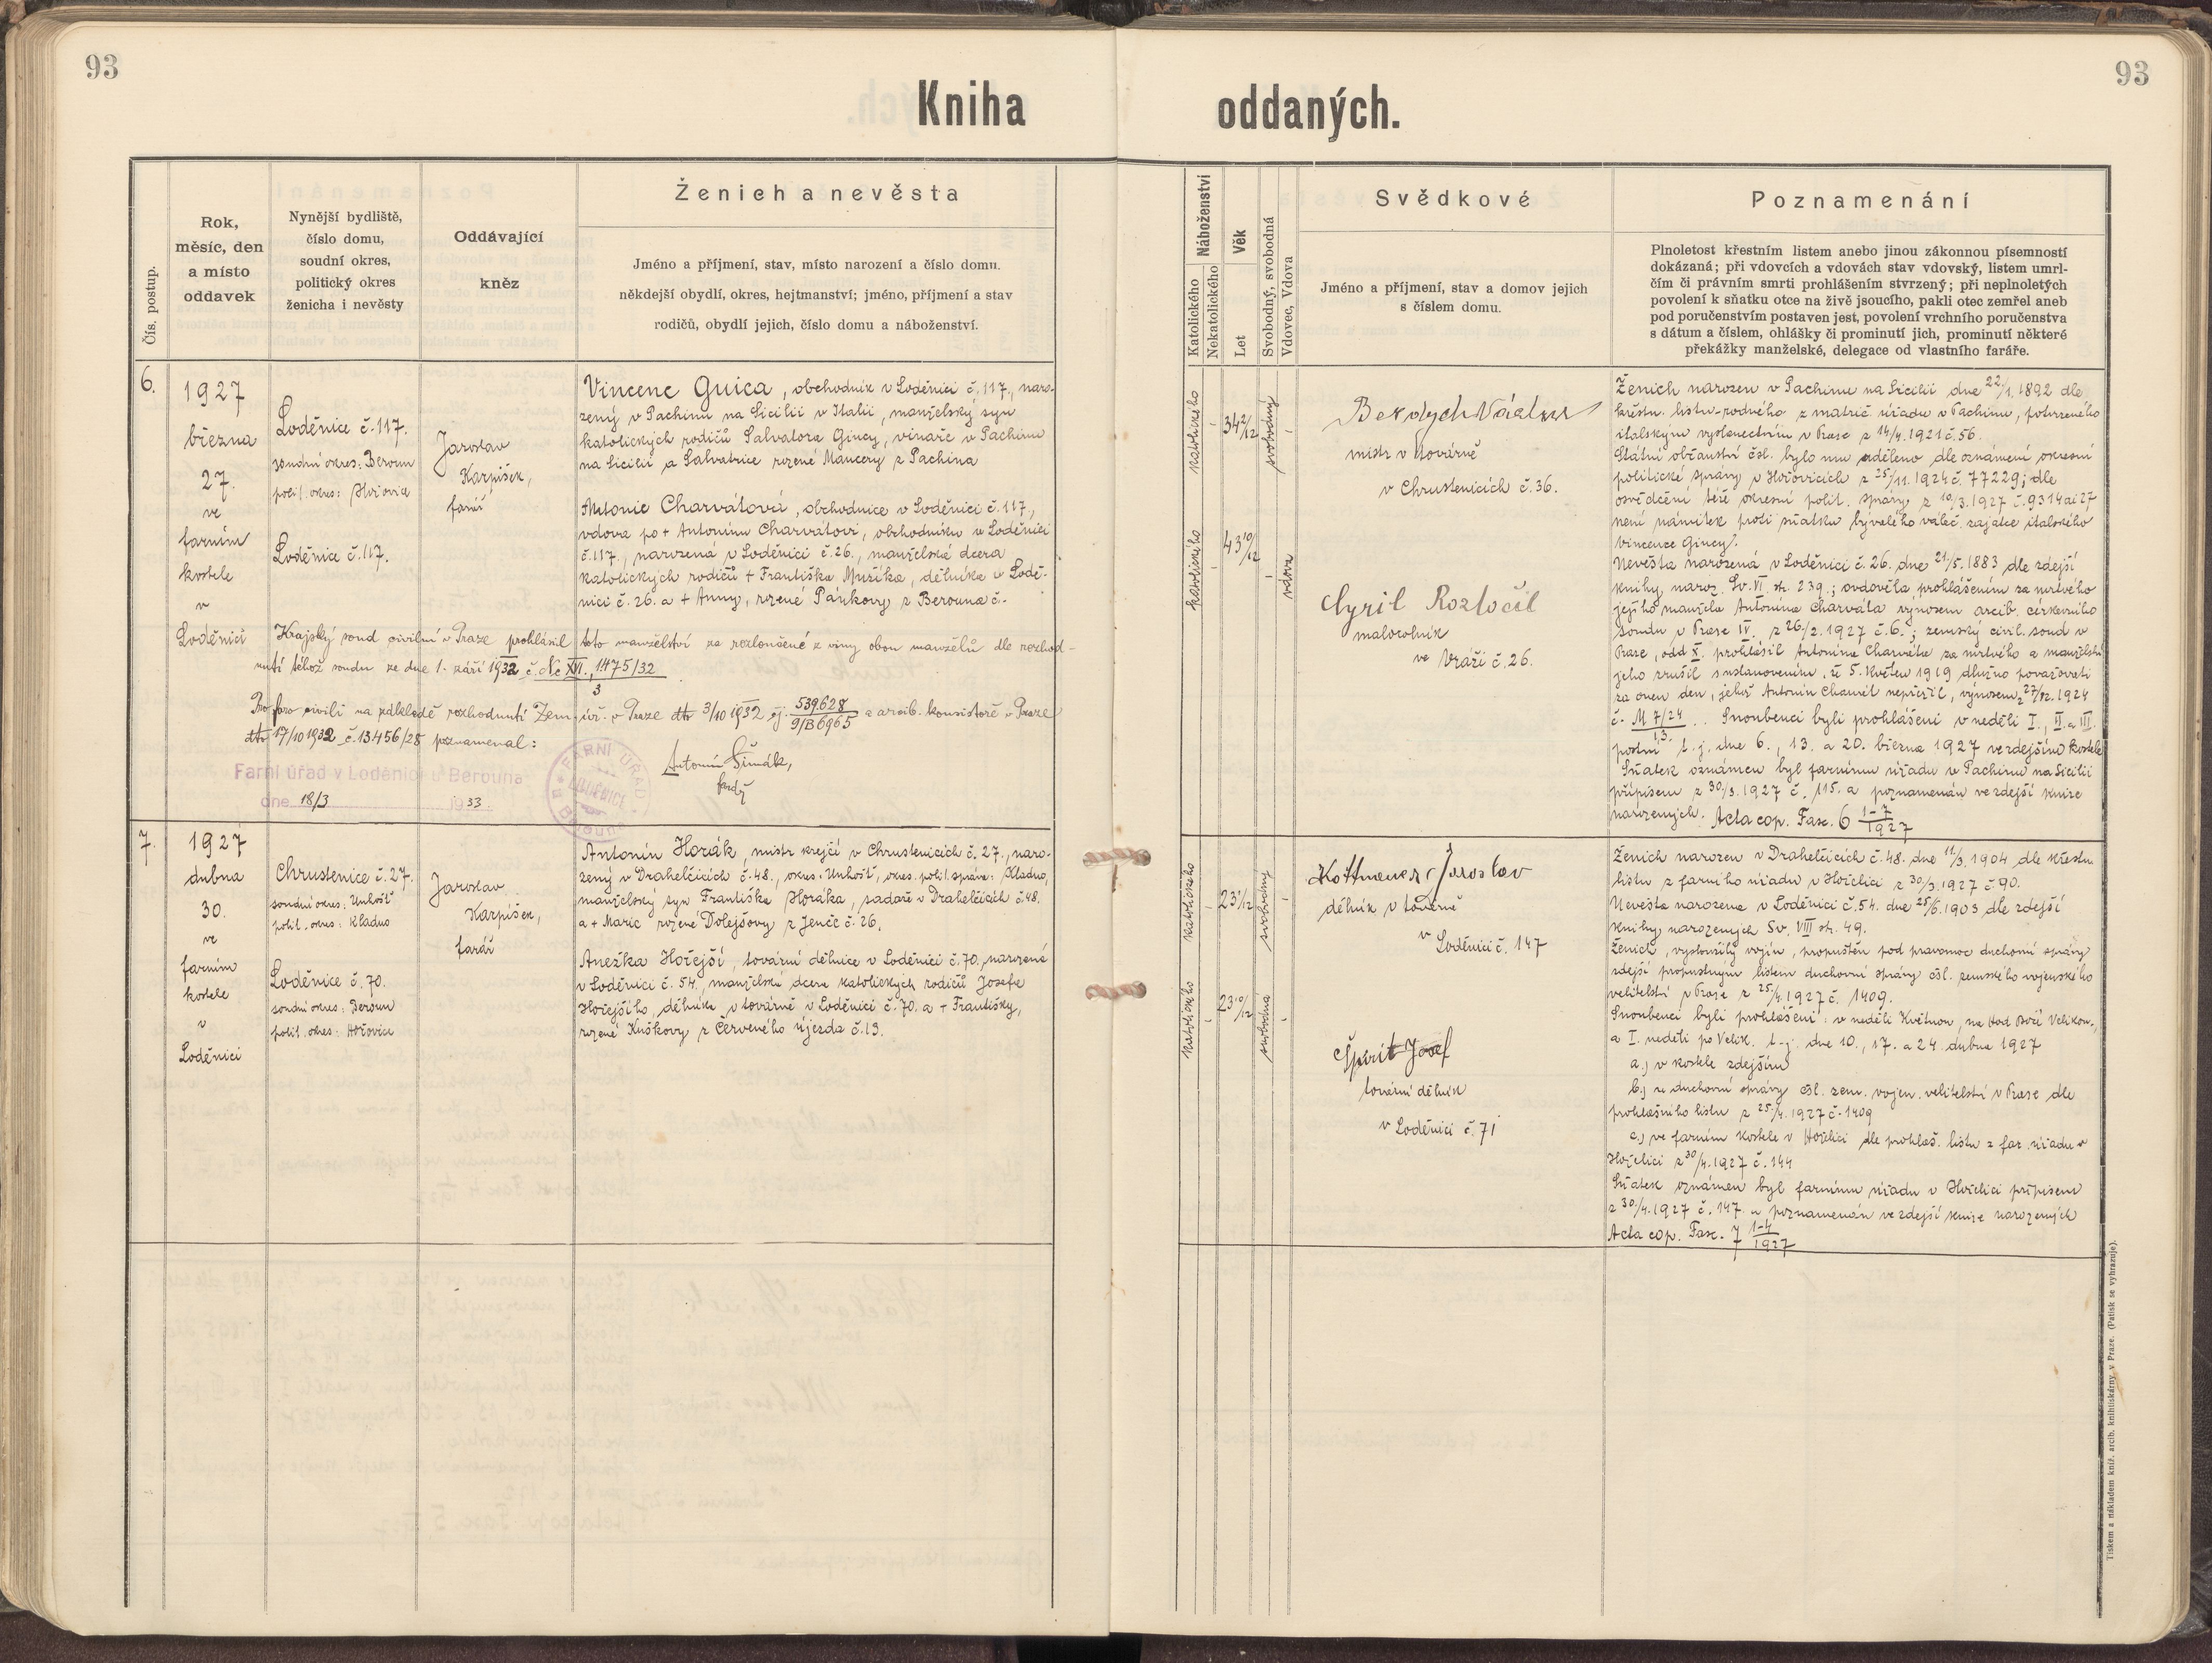 93
93
Kniha oddaných.
Čís. postup.
Rok,
měsíc, den
a místo
oddavek
Nynější bydliště,
číslo domu,
soudní okres,
politický okres
ženicha i nevěsty
Oddávající
kněz
Ženich a nevěsta
Jméno a příjmení, stav, místo narození a číslo domu.
někdejší obydlí, okres, hejtmanství; jméno, příjmení a stav
rodičů, obydlí jejich, číslo domu a náboženství.
Náboženství
Katolického
Nekatolického
Věk
Let
Svobodný, svobodná
Vdovec, Vdova
Svědkové
Jméno a příjmení, stav a domov jejich
s číslem domu.
Poznamenání
Plnoletost křestním listem anebo jinou zákonnou písemností
dokázaná; při vdovcích a vdovách stav vdovský, listem umrl-
čím či právním smrti prohlášením stvrzený; při neplnoletých
povolení k sňatku otce na živě jsoucího, pakli otec zemřel aneb
pod poručenstvím postaven jest, povolení vrchního poručenstva
s dátum a číslem, ohlášky či prominutí jich, prominutí některé
překážky manželské, delegace od vlastního faráře.
6.
1927
března
27.
ve
farním
kostele
v
Loděnici
Loděnice č. 117.
soudní okres: Beroun
polit. okres: Hořovice
Loděnice č. 117.
Jaroslav
Karpíšek,
farář
Vincenc Guica, obchodník v Loděnici č. 117., naro-
zený v Pachinu na Sicilii v Italii, manželský syn
katolických rodičů Salvatora Gincy, vinaře v Pachinu
na Sicilii a Salvatrice rozené Mancery z Pachina
Antonie Charvátová, obchodnice v Loděnici č. 117.,
vdova po + Antonínu Charvátovi, obchodníku v Loděnici
č. 117., narozená v Loděnici č. 26., manželská dcera
katolických rodičů + Františka Mužíka, dělníka v Lodě-
nici č. 26. a + Anny, rozené Pánkovy z Berouna č. -
Krajský soud civilní v Praze prohlásil toto manželství za rozloučené z viny obou manželů dle rozhod-
nutí téhož soudu ze dne 1. září 1932 č. Nc XVI. 1475/32
3
Pro foro civili na základě rozhodnutí Zem. úř. v Praze dto 3/10 1932 čj. 539628
9/B6965 a arcib. konsistoře v Praze
dto 17/10 1932 č. 13456/28 poznamenal:
Farní úřad v Loděnici u Berouna
dne 18/3 1933.
FARNÍ ÚŘAD LODĚNICE u Berouna
Antonín Šimák,
farář
katolického
34 2/12
svobodný
katolického
43 10/12
vdova
mistr v továrně
v Chrustenicích č. 36.
Cyril Roztočil
maloroľník
ve Vráži č. 26.
Ženich narozen v Pachinu na Sicilii dne 22/1. 1892 dle
křestn. listu - rodného z matrič. úřadu v Pachinu, potvrzeného
italským vyslanectvím v Praze z 14/4. 1921 č. 56.
Státní občanství čsl. bylo mu uděleno dle oznámení okresní
politické správy v Hořovicích z 25/11. 1924 č. 77229; dle
osvědčení téže okresní polit. správy z 10/3. 1927 č. 9314 ai 27
není námitek proti sňatku bývalého váleč. zajatce italského
Vincence Gincy.
Nevěsta narozená v Loděnici č. 26. dne 21/5. 1883 dle zdejší
knihy naroz. Sv. VI. str. 239.; ovdověla prohlášením za mrtvého
jejího manžela Antonína Charváta výnosem arcib. církevního
soudu v Praze IV. z 26/2. 1927 č. 6.; zemský civil. soud v
Praze, odd. X. prohlásil Antonína Charváta za mrtvého a manželství
jeho zrušil s ustanovením, že 5. květen 1919 dlužno považovati
za onen den, jehož Antonín Charvát nepřežil, výnosem z 27/12. 1924
č. M 7/24
13. Snoubenci byli prohlášeni v neděli I., II. a III.
postní t. j. dne 6., 13. a 20. března 1927 ve zdejším kostele
Sňatek oznámen byl farnímu úřadu v Pachinu na Sicilii
přípisem z 30/3. 1927 č. 115. a poznamenán ve zdejší knize
narozených. Acta cop. Fasc. 6 1-7
1927
7.
1927
dubna
30.
ve
farním
kostele
v
Loděnici
Chrustenice č. 27.
soudní okres: Unhošť
polit. okres: Kladno
Loděnice č. 70.
soudní okres: Beroun
polit. okres: Hořovice
Jaroslav
Karpíšek,
farář
Antonín Horák, mistr krejčí v Chrustenicích č. 27., naro-
zený v Drahelčicích č. 48., okres: Unhošť, okres. polit. správa: Kladno,
manželský syn Františka Horáka, sadaře v Drahelčicích č. 48.
a + Marie rozené Dolejšovy z Jenče č. 26.
Anežka Hořejší, tovární dělnice v Loděnici č. 70., narozená
v Loděnici č. 54., manželská dcera katolických rodičů Josefa
Hořejšího, dělníka v továrně v Loděnici č. 70. a + Františky,
rozené Kuškovy z Červeného Újezda č. 13.
katolického
23 1/12
svobodný
katolického
23 10/12
svobodná
Jaroslav
dělník v továrně
v Loděnici č. 147
Josef
tovární dělník
v Loděnici č. 71
Ženich narozen v Drahelčicích č. 48. dne 11/3. 1904 dle křestn.
listu z farního úřadu v Hořelici z 30/3. 1927 č. 90.
Nevěsta narozena v Loděnici č. 54. dne 25/6. 1903 dle zdejší
knihy narozených Sv. VIII str. 49.
Ženich, vysloužilý vojín, propuštěn pod pravomoc duchovní správy
zdejší propustným listem duchovní správy čsl. zemského vojenského
velitelství v Praze z 25/4. 1927 č. 1409.
Snoubenci byli prohlášeni: v neděli Květnou, na Hod Boží Velikon.,
a I. neděli po Velik. t. j. dne 10., 17. a 24. dubna 1927
a.) v kostele zdejším
b.) u duchovní správy čsl. zem. vojen. velitelství v Praze dle
prohlašního listu z 25/4. 1927 č. 1409
c.) ve farním kostele v Hořelici dle prohlaš. listu z far. úřadu v
Hořelici z 30/4. 1927 č. 144
Sňatek oznámen byl farnímu úřadu v Hořelici přípisem
z 30/4. 1927 č. 147. a poznamenán ve zdejší knize narozených
Acta cop. Fasc. 7 1-4
1927
Tiskem a nákladem kníž. arcib. knihtiskárny v Praze. (Patisk se vyhrazuje).